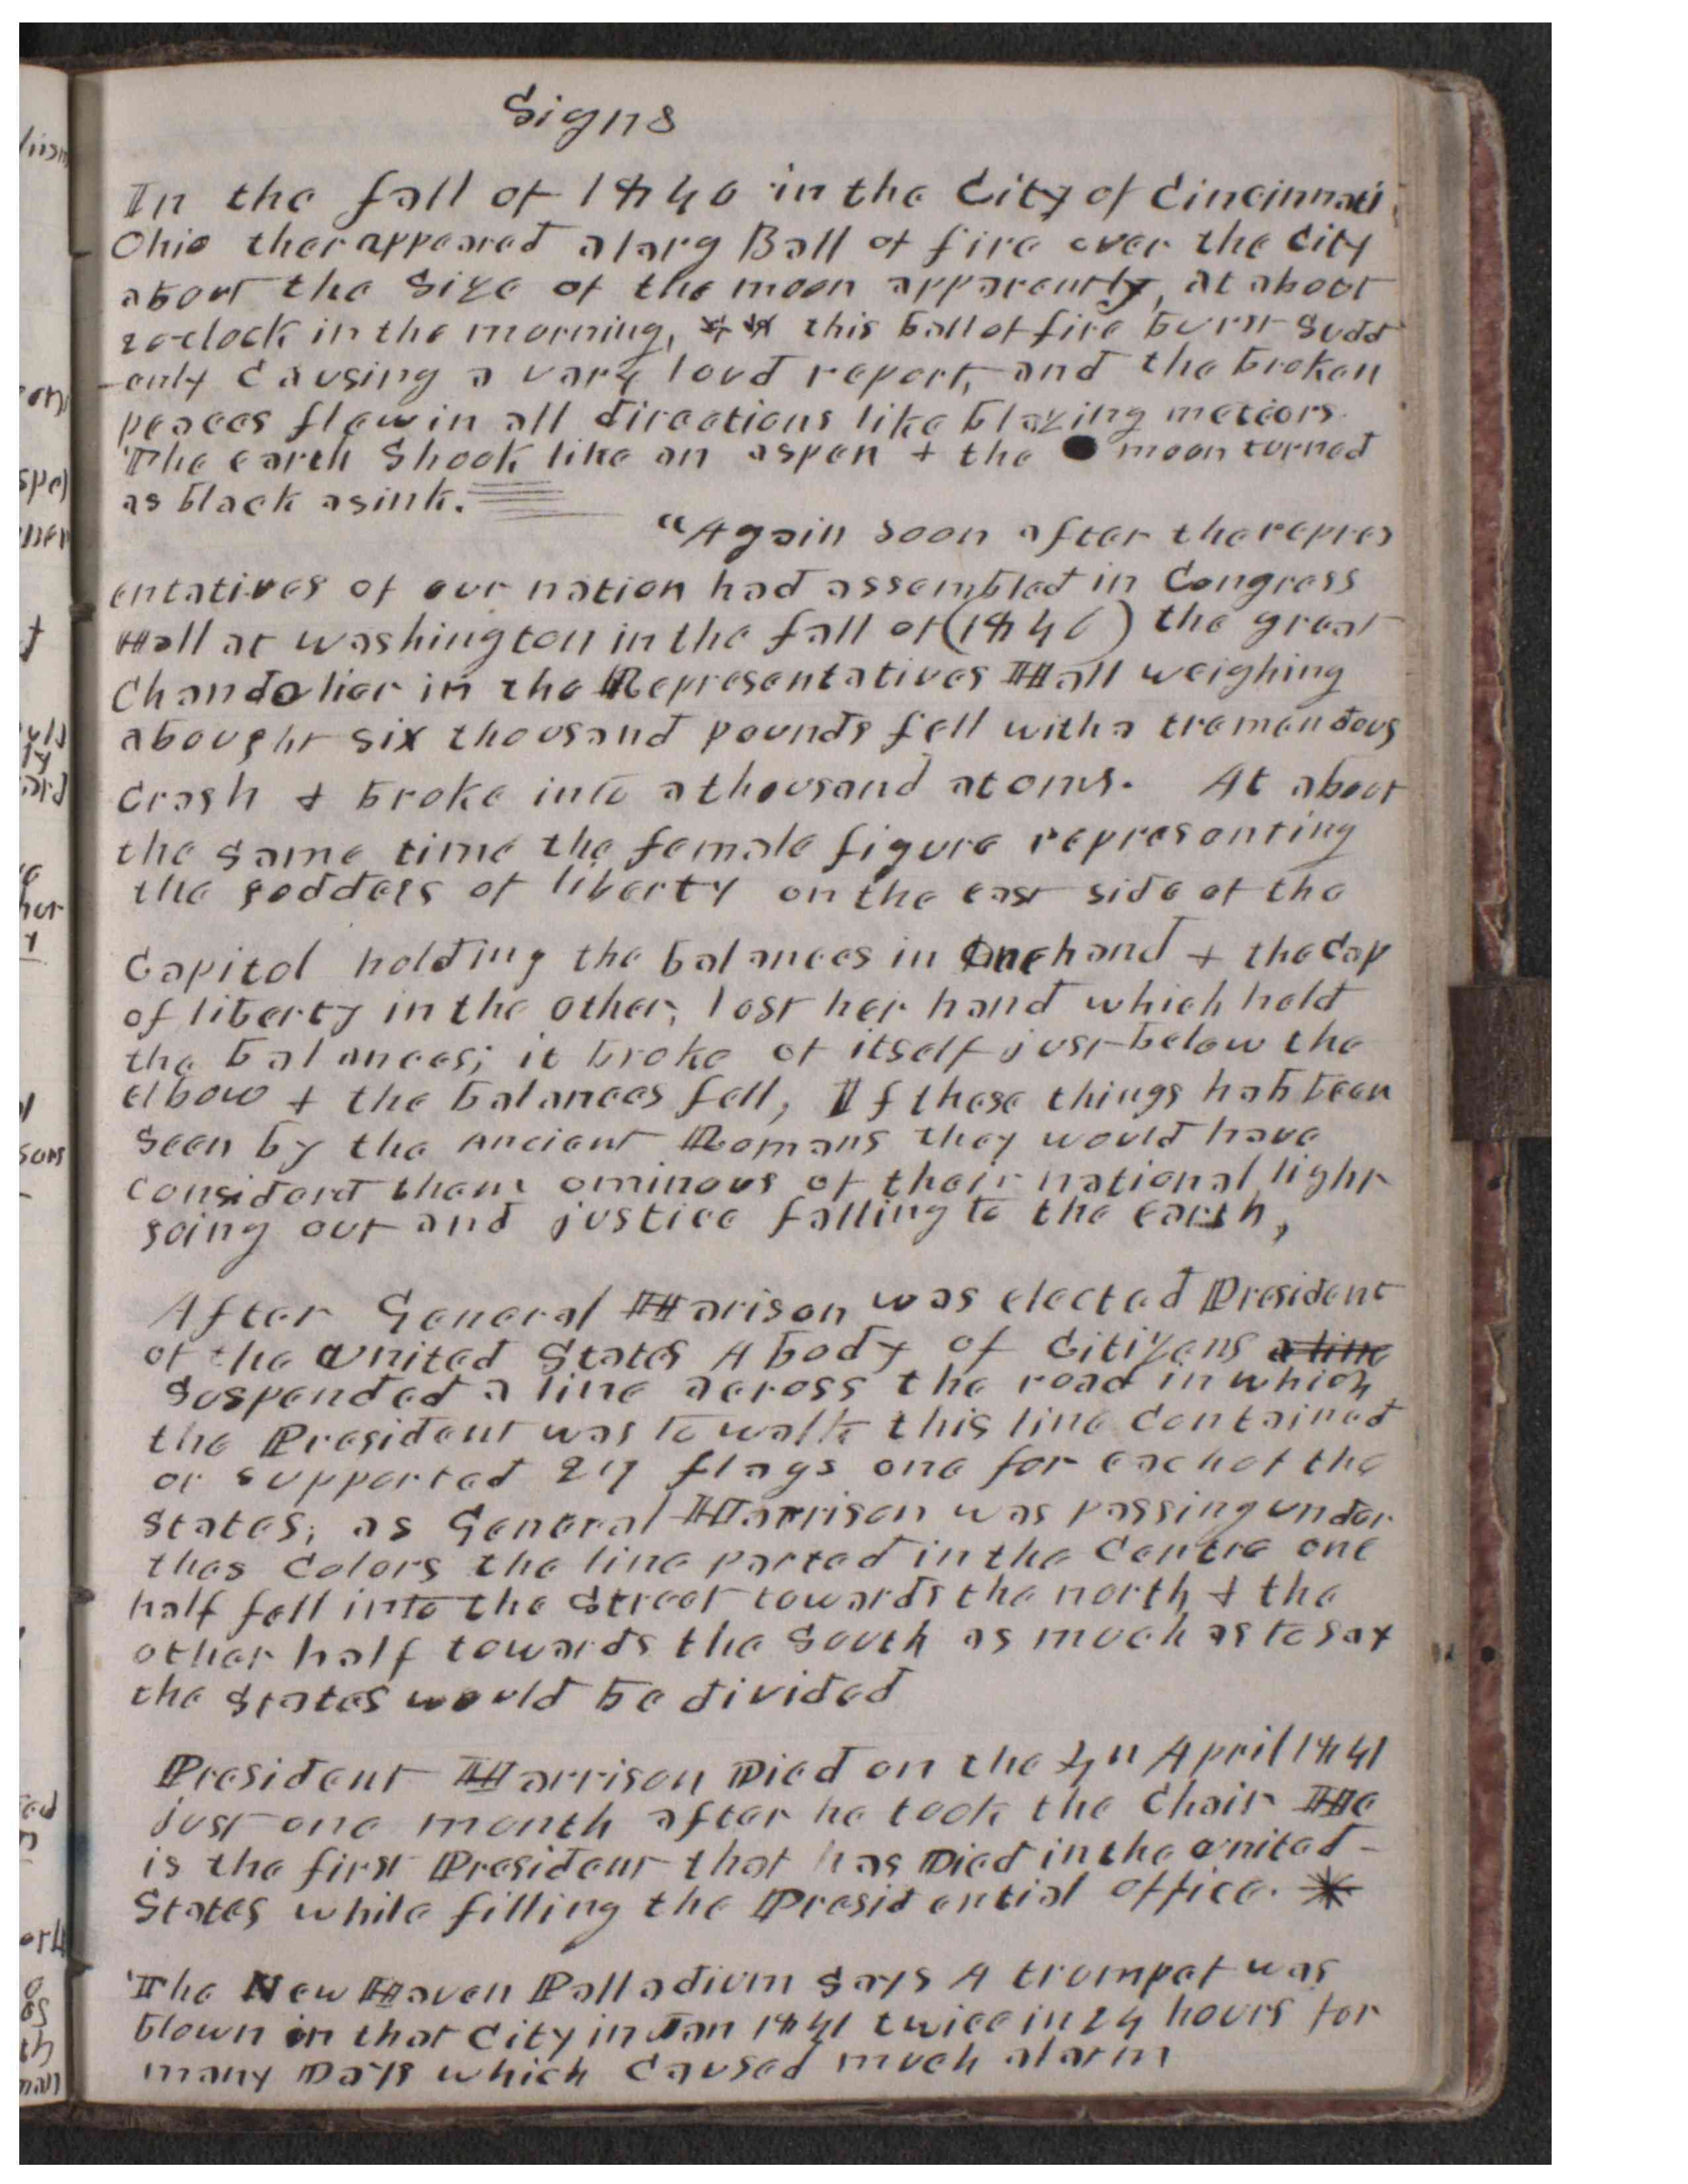 Signs
In the fall of 1840 in the City of Cincinnati
Ohio ther appeared a larg Ball of fire over the City
about the size of the moon apparently, at about
2 o-clock in the morning, ** this ball of fire burst sudd
-enly causing a vary loud report, and the broken
peaces flew in all directions like blazing meteors.
The earth Shook like an aspen + the moon turned
as black as ink.
"Again soon after the repres
entatives of our nation had assembled in Congress
Hall at washington in the fall of (1840) the great
Chandelier in the Representatives Hall weighing
abought six thousand pounds fell with a tremendous
crash & broke into a thousand atoms. At about
the same time the female figure representing
the goddess of liberty on the east side of the
Capitol holding the balances in One hand + the cap
of liberty in the other, lost her hand which held
the balances; it broke of itself just below the
elbow + the balances fell, If these things hab been
seen by the Ancient Romans they would have
considerd them ominous of their national light
going out and justice falling to the earth,
After General Harison was elected President
of the United States A body of Citizens a line
Suspended a line across the road in which
the President was to walk this line contained
or supported 27 flags one for each of the
States; as General Harrison was passing under
thes colors the line parted in the centre one
half fell into the Street towards the north & the
other half towards the South as much as to say
the States would be divided
President Harrison Died on the 4" April 1841
just one month after he took the chair He
is the first President that has Died in the United-
States while filling the Presidential office. *
The New Haven Palladium says A trumpet was
blown in that City in Jan 1841 twice in 24 hours for
many Days which caused much alarm